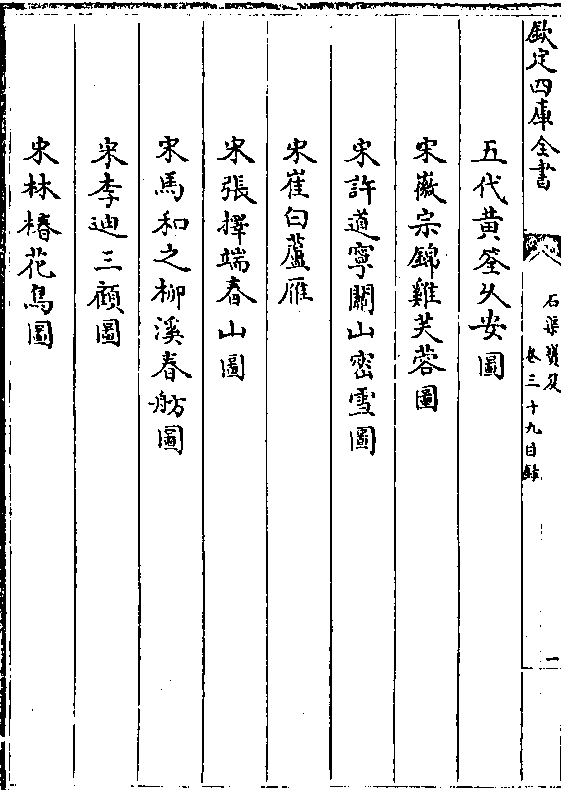 欽定四庫全書
石渠寶笈
卷三十九目錄
一
五代黄筌久安圖
宋徽宗錦雞芙蓉圖
宋許道寧關山密雪圖
宋崔白蘆雁
宋張擇端春山圖
宋馬和之柳溪春舫圖
宋李迪三顧圖
宋林椿花鳥圖